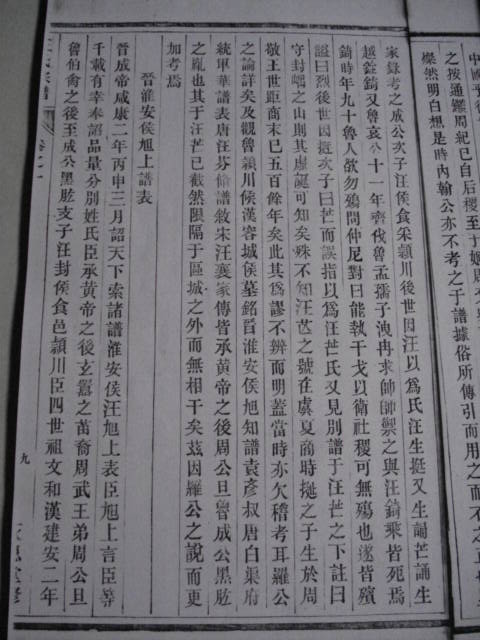 中國
之按通鑑周紀巳自后稷至于
燦然明白想是時內翰公亦不考之于譜據俗所傳引而用之
家錄考之成公次子汪侯食采潁川後世因汪以爲氏汪生挺又生誦芒誦生
越鍂錡又魯哀公十一年齊伐魯孟孺子洩冉求帥師禦之與汪錡乘皆死焉
錡時年九十魯人欲勿殤問仲尼對曰能執干戈以衛社稷可無殤也遂皆殯
諡曰烈後世因挺次子曰芒而誤指以爲汪芒氏又見別譜于汪芒之下註曰
守封嵎之山則其虛誕可知矣殊不知汪芒之號在虞夏商時挺之子生於周
敬王世距商末巳五百餘年矣此其爲謬不辨而明蓋當時亦欠稽考耳羅公
之論詳矣及觀魯潁川侯漢容城侯墓銘晉淮安侯旭知譜袁彥叔唐白渠府
統軍華譜表唐汪芬脩譜敘宋汪襄家傳皆承黃帝之後周公旦魯成公黑肱
之胤也其于汪芒巳截然限隔于區域之外而無相干矣茲因羅公之說而更
加考焉
晉淮安侯旭上譜表
晉成帝咸康二年丙申三月詔天下索諸譜淮安侯汪旭上表臣旭上言臣等
千載有幸奉詔品量分別姓氏臣承黃帝之後玄囂之苗裔周武王弟周公旦
魯伯禽之後至成公黑肱支子汪封侯食邑潁川臣四世祖文和漢建安二年
九